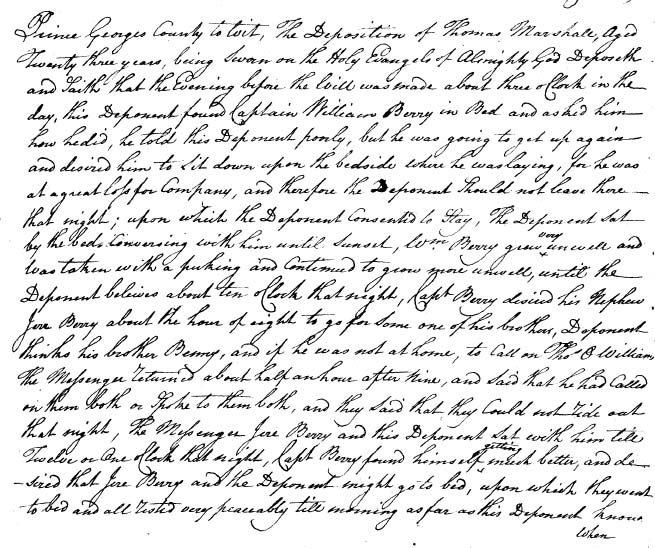 Prince Georges County to wit, The Deposition of Thomas Marshall, Aged
Twenty three years, being Sworn on the Holy Evangels of Almighty God Deposeth
and Saith that the Evening before the Will was made about three oClock in the
day, this Deponent found Captain William Berry in Bed and asked him
how he did, he told this Deponent poorly, but he was going to get up again
and desired him to Sit down upon the bedside where he was laying, for he was
at a great loss for Company, and therefore the Deponent Should not leave there
that night; upon which the Deponent Consented to Stay, The Deponent Sat
by the bedd Conversing with him until Sunset, Wm Berry grew very unwell and
was taken with a puking and Continued to grow more unwell, until the
Deponent beleives about ten oClock that night, Capt Berry desired his Nephew
Jere Berry about the hour of eight to go for Some one of his brothers, Deponent
thinks his brother Benny, and if he was not at home, to Call on Thos O William
the Messenger returned about half an hour after Nine, and said that he had Called
on them both or Spoke to them both, and they Said that they Could not ride out
that night, The Messenger Jere Berry and this Deponent Sat with him till
Twelve or One oClock that night, Capt Berry found himself getting much better, and de-
-sired that Jere Berry and the Deponent might go to bed, upon which they went
to bed and all rested very peaceably till morning as far as this Deponent knows
When